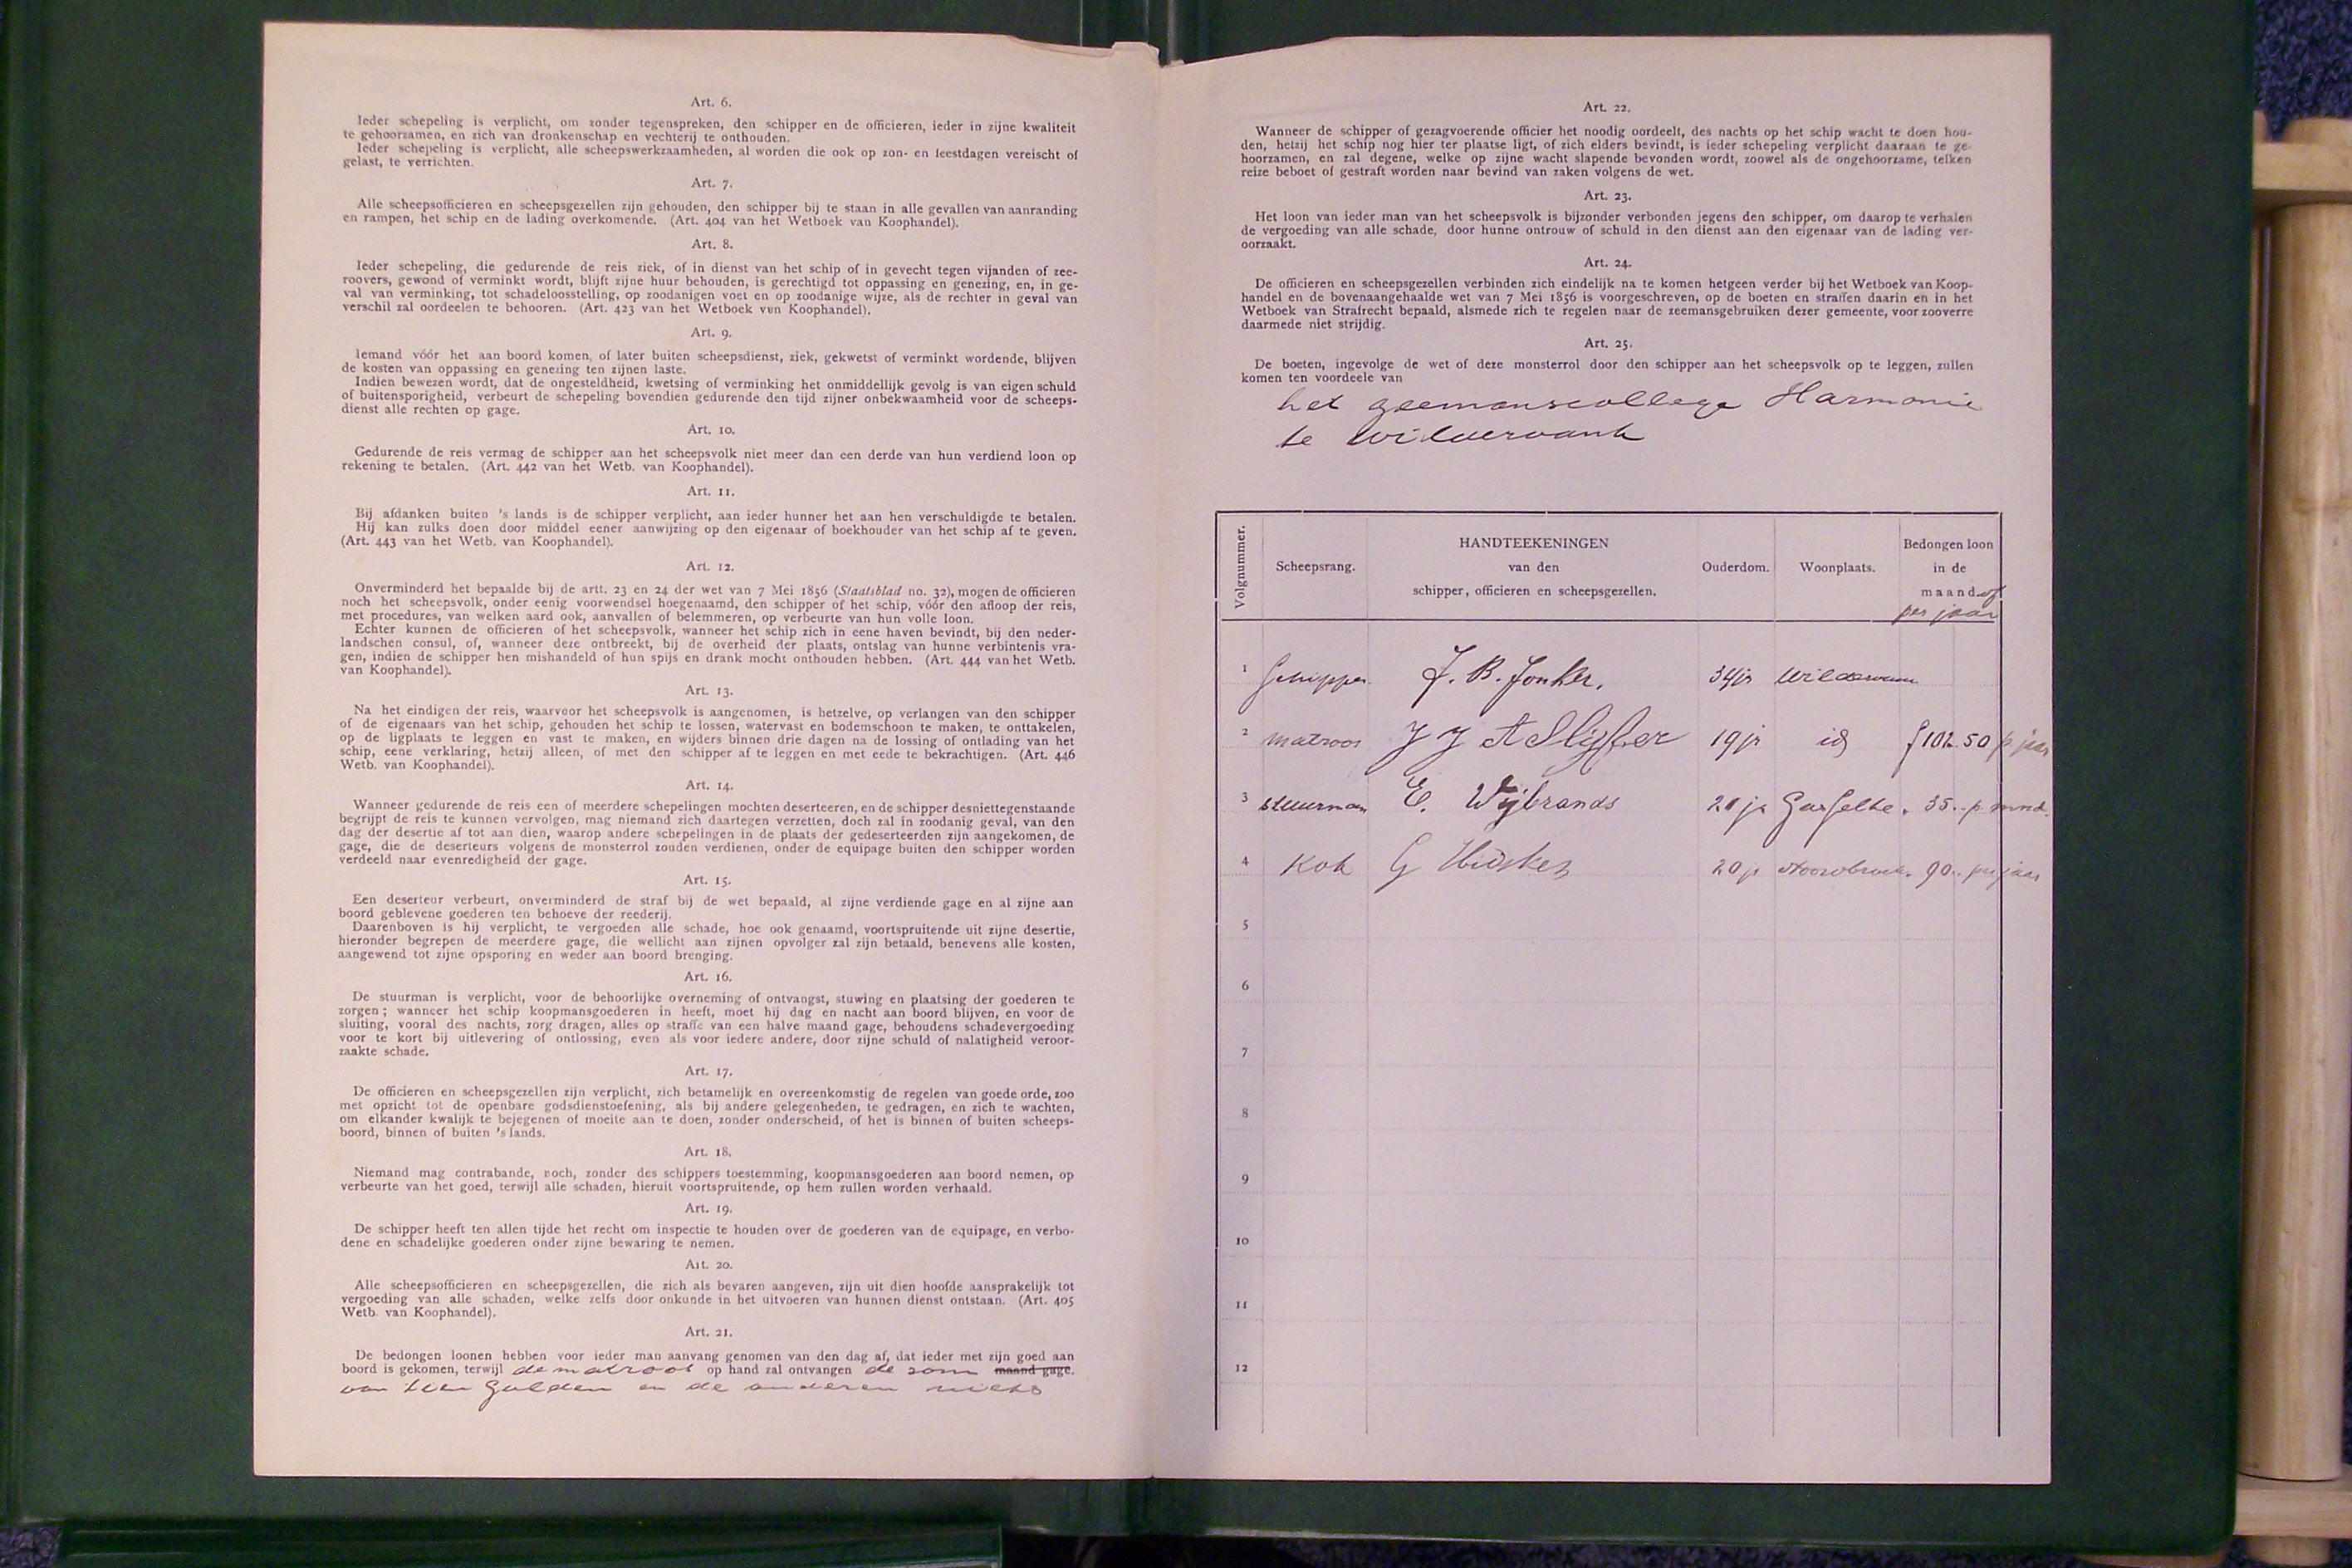 Art. 6.
Ieder schepeling is verplicht, om zonder tegenspreken, den schipper en de officieren, ieder in zijne kwaliteit
te gehoorzamen, en zich van dronkenschap en vechterij te onthouden.
Ieder schepeling is verplicht, alle scheepswerkzaamheden, al worden die ook op zon- en feestdagen vereischt of
gelast, te verrichten.
Art. 7.
Alle scheepsofficieren en scheepsgezellen zijn gehouden, den schipper bij te staan in alle gevallen van aanranding
en rampen, het schip en de lading overkomende. (Art. 404 van het Wetboek van Koophandel).
Art. 8.
Ieder schepeling, die gedurende de reis ziek, of in dienst van het schip of in gevecht tegen vijanden of zee-
roovers, gewond of verminkt wordt, blijft zijne huur behouden, is gerechtigd tot oppassing en genezing, en, in ge-
val van verminking, tot schadeloosstelling, op zoodanigen voet en op zoodanige wijze, als de rechter in geval van
verschil zal oordeelen te behooren. (Art. 423 van het Wetboek van Koophandel).
Art. 9.
Iemand vóór het aan boord komen, of later buiten scheepsdienst, ziek, gekwetst of verminkt wordende, blijven
de kosten van oppassing en genezing ten zijnen laste.
Indien bewezen wordt, dat de ongesteldheid, kwetsing of verminking het onmiddellijk gevolg is van eigen schuld
of buitensporigheid, verbeurt de schepeling bovendien gedurende den tijd zijner onbekwaamheid voor de scheeps-
dienst alle rechten op gage.
Art. 10.
Gedurende de reis vermag de schipper aan het scheepsvolk niet meer dan een derde van hun verdiend loon op
rekening te betalen. (Art. 442 van het Wetb. van Koophandel).
Art. 11.
Bij afdanken buiten 's lands is de schipper verplicht, aan ieder hunner het aan hen verschuldigde te betalen.
Hij kan zulks doen door middel eener aanwijzing op den eigenaar of boekhouder van het schip af te geven.
(Art. 443 van het Wetb. van Koophandel).
Art. 12.
Onverminderd het bepaalde bij de artt. 23 en 24 der wet van 7 Mei 1856 (Staatsblad no. 32), mogen de officieren
noch het scheepsvolk, onder eenig voorwendsel hoegenaamd, den schipper of het schip, vóór den afloop der reis,
met procedures, van welken aard ook, aanvallen of belemmeren, op verbeurte van hun volle loon.
Echter kunnen de officieren of het scheepsvolk, wanneer het schip zich in eene haven bevindt, bij den neder-
landschen consul, of, wanneer deze ontbreekt, bij de overheid der plaats, ontslag van hunne verbintenis vra-
gen, indien de schipper hen mishandeld of hun spijs en drank mocht onthouden hebben. (Art. 444 van het Wetb.
van Koophandel).
Art. 13.
Na het eindigen der reis, waarvoor het scheepsvolk is aangenomen, is hetzelve, op verlangen van den schipper
of de eigenaars van het schip, gehouden het schip te lossen, watervast en bodemschoon te maken, te onttakelen,
op de ligplaats te leggen en vast te maken, en wijders binnen drie dagen na de lossing of ontlading van het
schip, eene verklaring, hetzij alleen, of met den schipper af te leggen en met eede te bekrachtigen. (Art. 446
Wetb. van Koophandel).
Art. 14.
Wanneer gedurende de reis een of meerdere schepelingen mochten deserteeren, en de schipper desniettegenstaande
begrijpt de reis te kunnen vervolgen, mag niemand zich daartegen verzetten, doch zal in zoodanig geval, van den
dag der desertie af tot aan dien, waarop andere schepelingen in de plaats der gedeserteerden zijn aangekomen, de
gage, die de deserteurs volgens de monsterrol zouden verdienen, onder de equipage buiten den schipper worden
verdeeld naar evenredigheid der gage.
Art. 15.
Een deserteur verbeurt, onverminderd de straf bij de wet bepaald, al zijne verdiende gage en al zijne aan
boord geblevene goederen ten behoeve der reederij.
Daarenboven is hij verplicht, te vergoeden alle schade, hoe ook genaamd, voortspruitende uit zijne desertie,
hieronder begrepen de meerdere gage, die wellicht aan zijnen opvolger zal zijn betaald, benevens alle kosten,
aangewend tot zijne opsporing en weder aan boord brenging.
Art. 16.
De stuurman is verplicht, voor de behoorlijke overneming of ontvangst, stuwing en plaatsing der goederen te
zorgen; wanneer het schip koopmansgoederen in heeft, moet hij dag en nacht aan boord blijven, en voor de
sluiting, vooral des nachts, zorg dragen, alles op straffe van een halve maand gage, behoudens schadevergoeding
voor te kort bij uitlevering of ontlossing, even als voor iedere andere, door zijne schuld of nalatigheid veroor-
zaakte schade.
Art. 17.
De officieren en scheepsgezellen zijn verplicht, zich betamelijk en overeenkomstig de regelen van goede orde, zoo
met opzicht tot de openbare godsdienstoefening, als bij andere gelegenheden, te gedragen, en zich te wachten,
om elkander kwalijk te bejegenen of moeite aan te doen, zonder onderscheid, of het is binnen of buiten scheeps-
boord, binnen of buiten 's lands.
Art. 18.
Niemand mag contrabande, noch, zonder des schippers toestemming, koopmansgoederen aan boord nemen, op
verbeurte van het goed, terwijl alle schaden, hieruit voortspruitende, op hem zullen worden verhaald.
Art. 19.
De schipper heeft ten allen tijde het recht om inspectie te houden over de goederen van de equipage, en verbo-
dene en schadelijke goederen onder zijne bewaring te nemen.
Art. 20.
Alle scheepsofficieren en scheepsgezellen, die zich als bevaren aangeven, zijn uit dien hoofde aansprakelijk tot
vergoeding van alle schaden, welke zelfs door onkunde in het uitvoeren van hunnen dienst ontstaan. (Art. 405
Wetb. van Koophandel).
Art. 21.
De bedongen loonen hebben voor ieder man aanvang genomen van den dag af, dat ieder met zijn goed aan
boord is gekomen, terwijl de matroos op hand zal ontvangen de som maand gage.
van tien Gulden en de anderen niets
Art. 22.
Wanneer de schipper of gezagvoerende officier het noodig oordeelt, des nachts op het schip wacht te doen hou-
den, hetzij het schip nog hier ter plaatse ligt, of zich elders bevindt, is ieder schepeling verplicht daaraan te ge-
hoorzamen, en zal degene, welke op zijne wacht slapende bevonden wordt, zoowel als de ongehoorzame, telken
reize beboet of gestraft worden naar bevind van zaken volgens de wet.
Art. 23.
Het loon van ieder man van het scheepsvolk is bijzonder verbonden jegens den schipper, om daarop te verhalen
de vergoeding van alle schade, door hunne ontrouw of schuld in den dienst aan den eigenaar van de lading ver-
oorzaakt.
Art. 24.
De officieren en scheepsgezellen verbinden zich eindelijk na te komen hetgeen verder bij het Wetboek van Koop-
handel en de bovenaangehaalde wet van 7 Mei 1856 is voorgeschreven, op de boeten en straffen daarin en in het
Wetboek van Strafrecht bepaald, alsmede zich te regelen naar de zeemansgebruiken dezer gemeente, voor zooverre
daarmede niet strijdig.
Art. 25.
De boeten, ingevolge de wet of deze monsterrol door den schipper aan het scheepsvolk op te leggen, zullen
komen ten voordeele van
het zeemanscollege Harmonie
te Wildervank
Volgnummer. Scheepsrang. HANDTEEKENINGEN van den schipper, officieren en scheepsgezellen. Ouderdom. Woonplaats. Bedongen loon in de maand of per jaar
1 Schipper J. B. Jonker. 34 jr Wildervank
2 matroos J J A Slijfer 19 jr id f 102.50 p jaar
3 stuurman E. Wijbrands 21 jr Gasselte . 35.. p mnd.
4 Kok G Hidskes 20 jr Noordbroek. 90.. per jaar
5
6
7
8
9
10
11
12